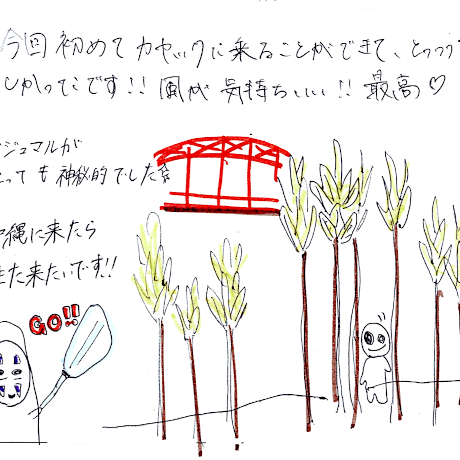 今回初めてカヤックに乗ることができて、とっっ
しかったです!! 風が気持ちいい!! 最高♡
ジュマルが
とっても神秘的でした☆
縄に来たら
また来たいです!!
GO!!